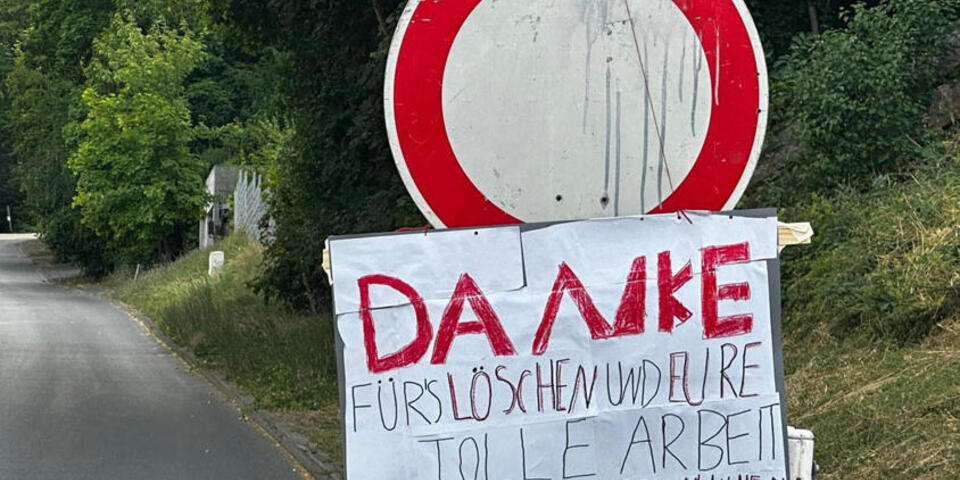 DANKE
FÜR'S LÖSCHEN UND EURE
TOLLE ARBEIT